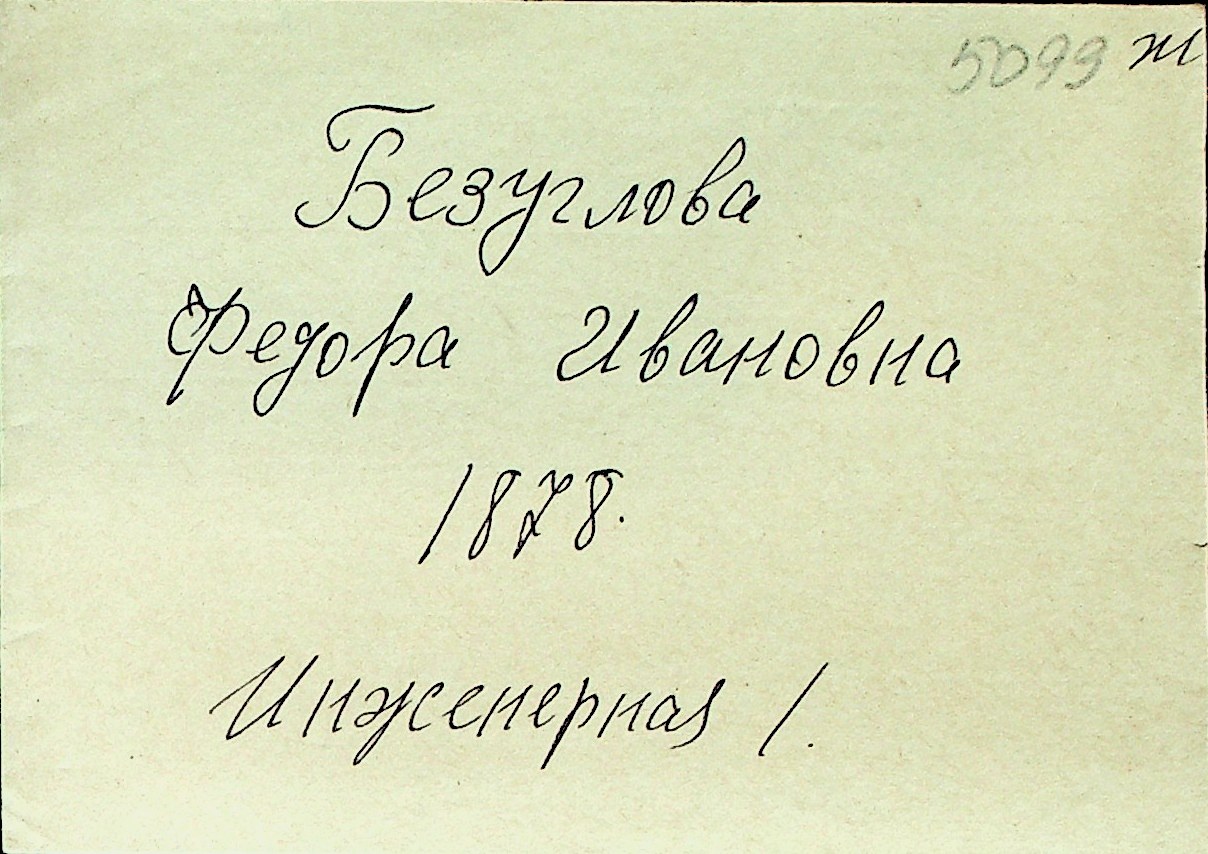 5099 ж
Безуглова
Федора Ивановна
1878.
Инженерная 1.